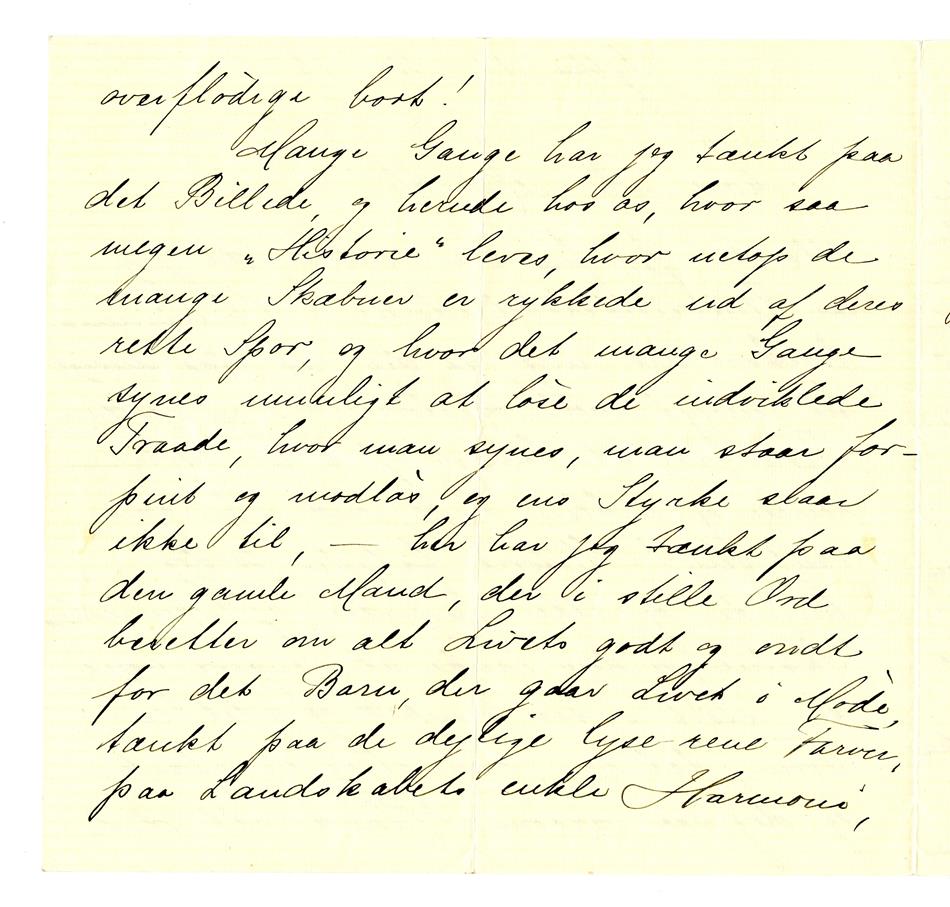 overflödige bort!
Mange Gange har jeg tænkt paa
det Billede, og herude hos os, hvor saa
megen „Historie“ leves, hvor netop de
mange Skæbner er rykkede ud af deres
rette Spor, og hvor det mange Gange
synes umuligt at löse de indviklede
Traade, hvor man synes, man staar for-
pint og modlös, og ens Styrke slaar
ikke til, — her har jeg tænkt paa
den gamle Mand, der i stille Ord
beretter om alt Livets godt og ondt
for det Barn, der gaar Livet i Möde,
tænkt paa de dejlige lyse rene Farver,
paa Landskabets enkle Harmoni,